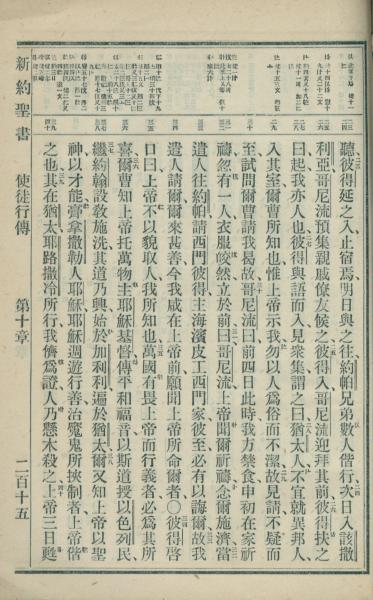 聽彼得延之入止宿焉明日與之往約帕兄弟數人偕行次日入該撒
利亞哥尼流預集親戚僚友候之彼得入哥尼流迎拜其前彼得扶之
曰起我亦人也彼得與語而入見衆集謂之曰猶太人不宜就異邦人
入其室爾曹所知也惟上帝示我勿以人爲俗而不潔故見請不疑而
至試問爾曹請我曷故哥尼流曰前四日此時我方禁食申初在家祈
禱忽有一人衣服皎然立於前曰哥尼流上帝聞爾祈禱念爾施濟當
遣人往約帕請西門彼得主海濱皮工西門家彼至必有以誨爾故我
遣人請爾爾來甚善今我咸在上帝前願聞上帝所命爾者○彼得啓
口曰上帝不以貌取人我所知也萬國有畏上帝而行義者必爲其所
喜爾曹知上帝托萬物主耶穌基督傳平和福音以斯道授以色列民
繼約翰設敎施洗其道乃興始於加利利遍於猶太爾又知上帝以聖
神以才能膏拿撒勒人耶穌耶穌週遊行善治魔鬼所挾制者上帝偕
之也其在猶太耶路撒冷所行我儕爲證人乃懸木殺之上帝三日甦
新約聖書 使徒行傳 第十章 二百十五